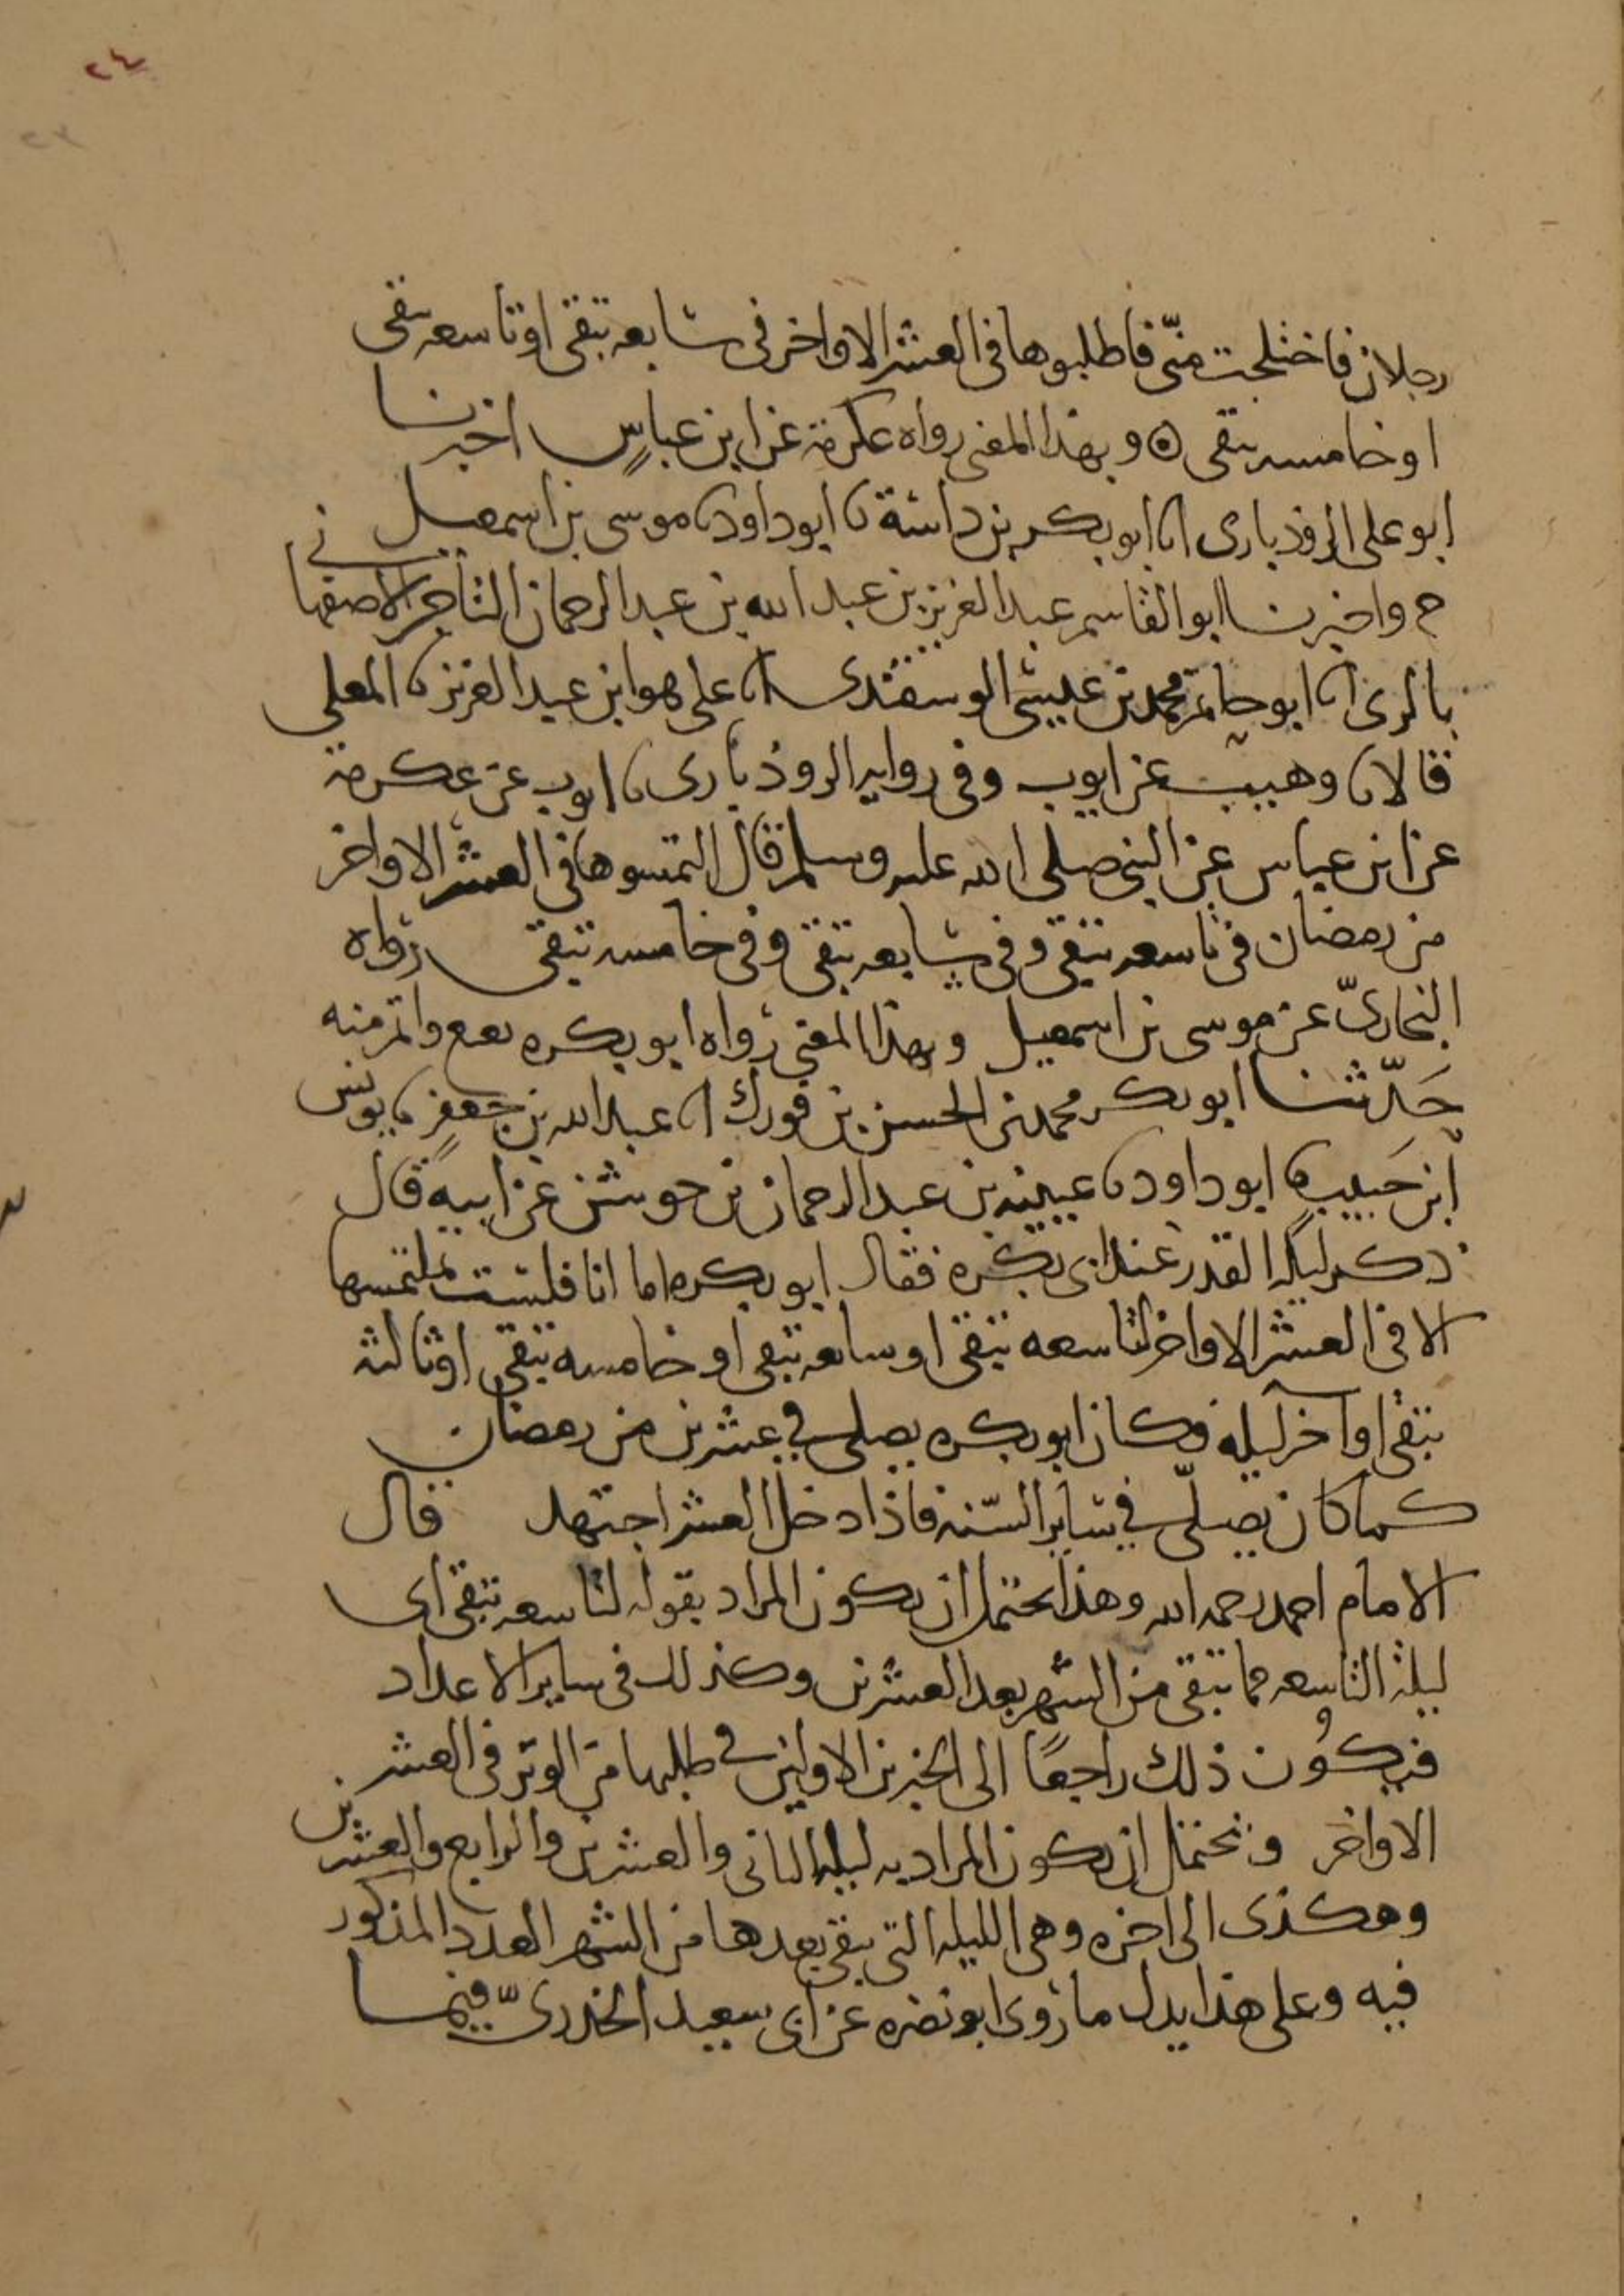 ٢٤
٢٣
رجلان فاختلجت منّي فاطلبوها في العشر الاواخر في سابعه تبقى او تاسعه تبقى
او خامسه تبقى ⊙ وبهذا المعنى رواه عكرمة عن ابن عباسٍ اخبرنا
ابو علي الروذباري انا ابو بكر بن داسة نا ابو داود نا موسى بن اسمعيل
ح واخبرنا ابو القاسم عبد العزيز بن عبد الله بن عبد الرحمان التاجر الاصفهاني
بالري انا ابو حاتم محمد بن عيسى الوسقندي انا علي هو ابن عبد العزيز نا المعلى
قالا نا وهيب عن ايوب وفي روايه الروذباري نا ايوب عن عكرمة
عن ابن عباس عن النبي صلى الله عليه وسلم قال التمسوها في العشر الاواخر
من رمضان في تاسعه تبقى وفي سابعه تبقى وفي خامسه تبقى رواه
البخاريّ عن موسى بن اسمعيل وبهذا المعنى رواه ابو بكره نفيع واتم منه
حَدّثنا ابو بكر محمد بن الحسن بن فورك انا عبد الله بن جَعفرٍ نا يونس
ابن حَبيبٍ نا ابو داود نا عيينه بن عبد الرحمان بن جوشن عن ابيه قال
ذكر ليله القدر عند ابي بكره فقال ابو بكره اما انا فلست بملتمسها
الا في العشر الاواخر لتاسعه تبقى او سابعه تبقى او خامسه تبقى او ثالثه
تبقى او آخر ليله فكان ابو بكره يصلي في عشرين من رمضان
كما كان يصلّي في سائر السّنه فاذا دخل العشر اجتهد قال
الامام احمد رحمه الله وهذا يحتمل ان يكون المراد بقوله لتاسعه تبقى اى
ليلة التاسعه مما تبقى من الشهر بعد العشرين وكذلك في ساير الاعداد
فيكُون ذلك راجعًا الى الخبرين الاولين في طلبها من الوتر في العشر
الاواخر ويحتمل ان يكون المراد به ليله الثاني والعشرين والرابع والعشرين
وهكذى الى اخره وهى الليله التي يبقى بعدها من الشهر العدد المذكور
فيه وعلى هذا يدل ما روى ابو نضره عن ابي سعيد الخدريّ فيما